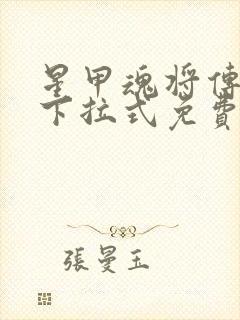 星甲魂将傳
下拉式免費
張曼玉